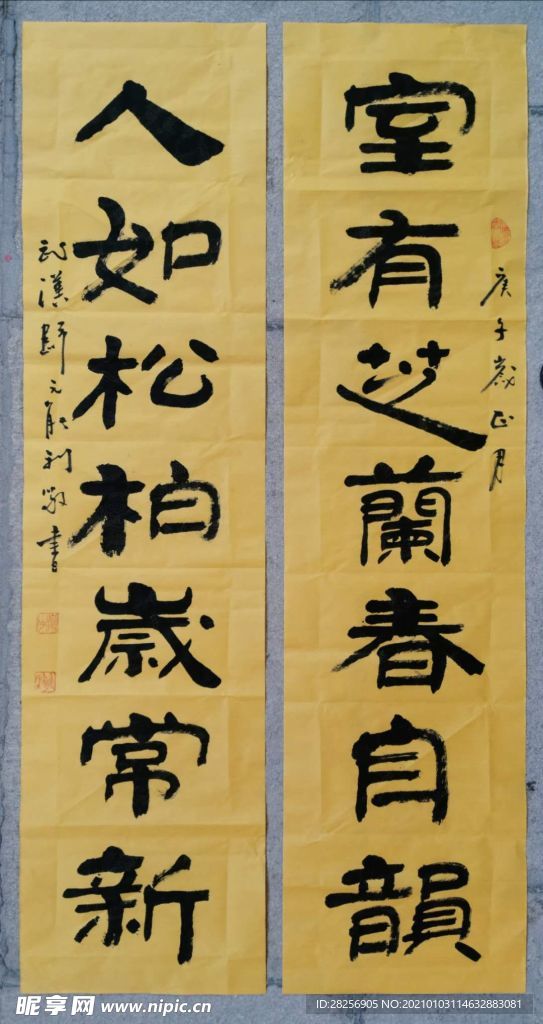 室有芝蘭春自韻
庚子歲正月
人如松柏歲常新
武漢
元龍利敬書
昵享网 www.nipic.cn
ID:28256905 NO:20210103114632883081